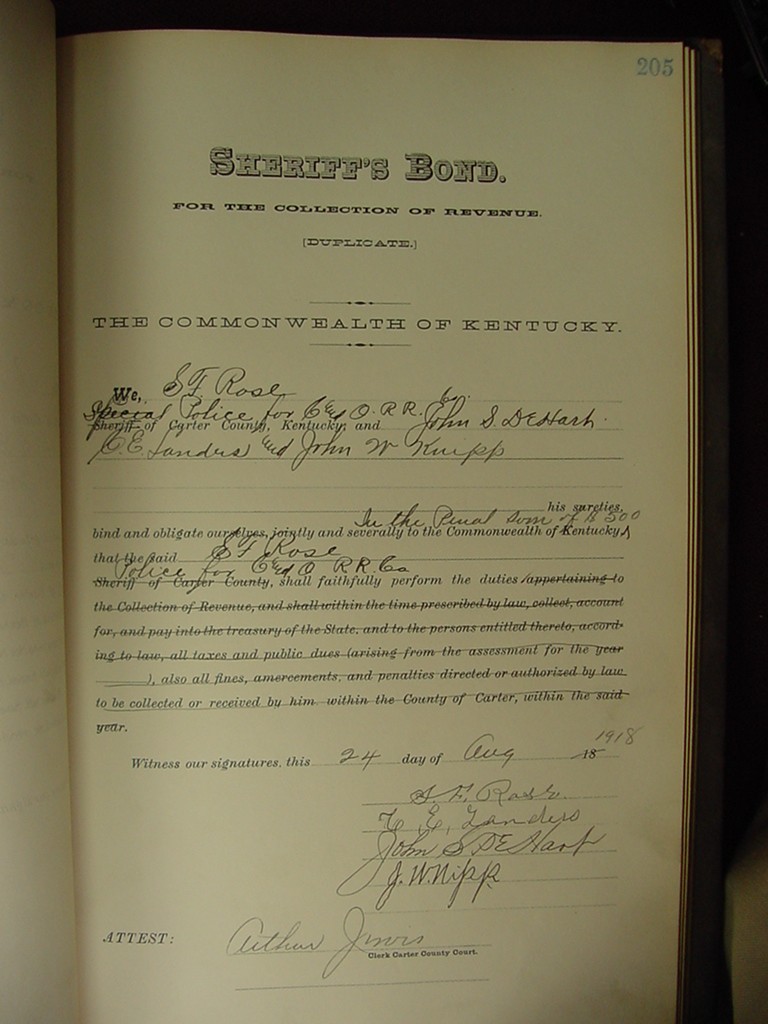 205
SHERIFF'S BOND.
FOR THE COLLECTION OF REVENUE.
[DUPLICATE.]
THE COMMONWEALTH OF KENTUCKY.
We, S F Rose
Special Police for C and O. R R. Co.
Sheriff of Carter County, Kentucky, and John S. DEHart.
C. E. Landers and John W Knipp
his sureties,
In the Penal Sum of $ 500
bind and obligate ourselves, jointly and severally to the Commonwealth of Kentucky
that the said S F Rose
Police for C and O R R. Co
Sheriff of Carter County, shall faithfully perform the duties appertaining to
the Collection of Revenue, and shall within the time prescribed by law, collect, account
for, and pay into the treasury of the State, and to the persons entitled thereto, accord-
ing to law, all taxes and public dues (arising from the assessment for the year
), also all fines, amercements, and penalties directed or authorized by law
to be collected or received by him within the County of Carter, within the said
year.
Witness our signatures, this 24 day of Aug 18 1918
S. F. Rose
C. E. Landers
John S DEHart
J. W. Nipp
ATTEST: Arthur Jarvis
Clerk Carter County Court.